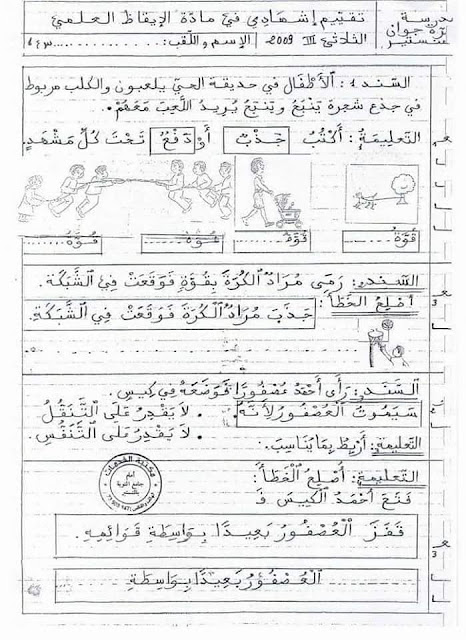 مدرسة
جوان
تقييم إشهادي في مادة الإيقاظ العلمي
الثلاثي III 2009 الإسم واللقب: ............ س 4
السّند 1: الْأَطْفَال في حديقة الحيّ يلعبون والكلب مربوط
في جذع شجرة يَنْبَحُ وَيَنْبَحُ يُرِيدُ اللَّعِبَ مَعَهُمْ.
التّعليمة: أَكْتُبُ جَذْبٌ أَوْ دَفْعٌ تَحْتَ كُلِّ مَشْهَدٍ.
قُوَّةُ ........ قُوَّةُ ........ قُوَّةُ ........ قُوَّةُ ........
السّند: رَمَى مُرَادُ الْكُرَةَ بِقُوَّةٍ فَوَقَعَتْ فِي الشَّبَكَة.
أُصْلِحُ الخَطَأَ:
جَذَبَ مُرَادُ الْكُرَةَ فَوَقَعَتْ فِي الشَّبَكَةِ.
السّند: رَأَى أَحْمَدُ عُصْفُورًا فَوَضَعَهُ فِي كِيسٍ.
سَيَمُوتُ الْعُصْفُورُ لِأَنَّهُ • لَا يَقْدِرُ عَلَى التَّنَقُّلِ
• لَا يَقْدِرُ عَلَى التَّنَفُّسِ.
التعليمة: أَرْبِطُ بِمَا يُنَاسِبُ.
التّعليمة: أُصْلِحُ الْخَطَأَ:
فَتَحَ أَحْمَدُ الْكِيسَ فَ
قَفَزَ الْعُصْفُورُ بَعِيدًا بِوَاسِطَةِ قَوَائِمِهِ.
الْعُصْفُورُ بَعِيدًا بِوَاسِطَةِ
مكتبة الخدمات
أمام
جامع التوبة